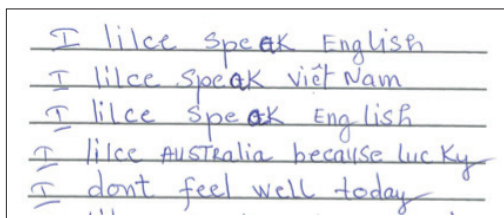 I like speak English
I like speak việt Nam
I like speak English
I like AUSTRalia because lucky
I dont feel well today